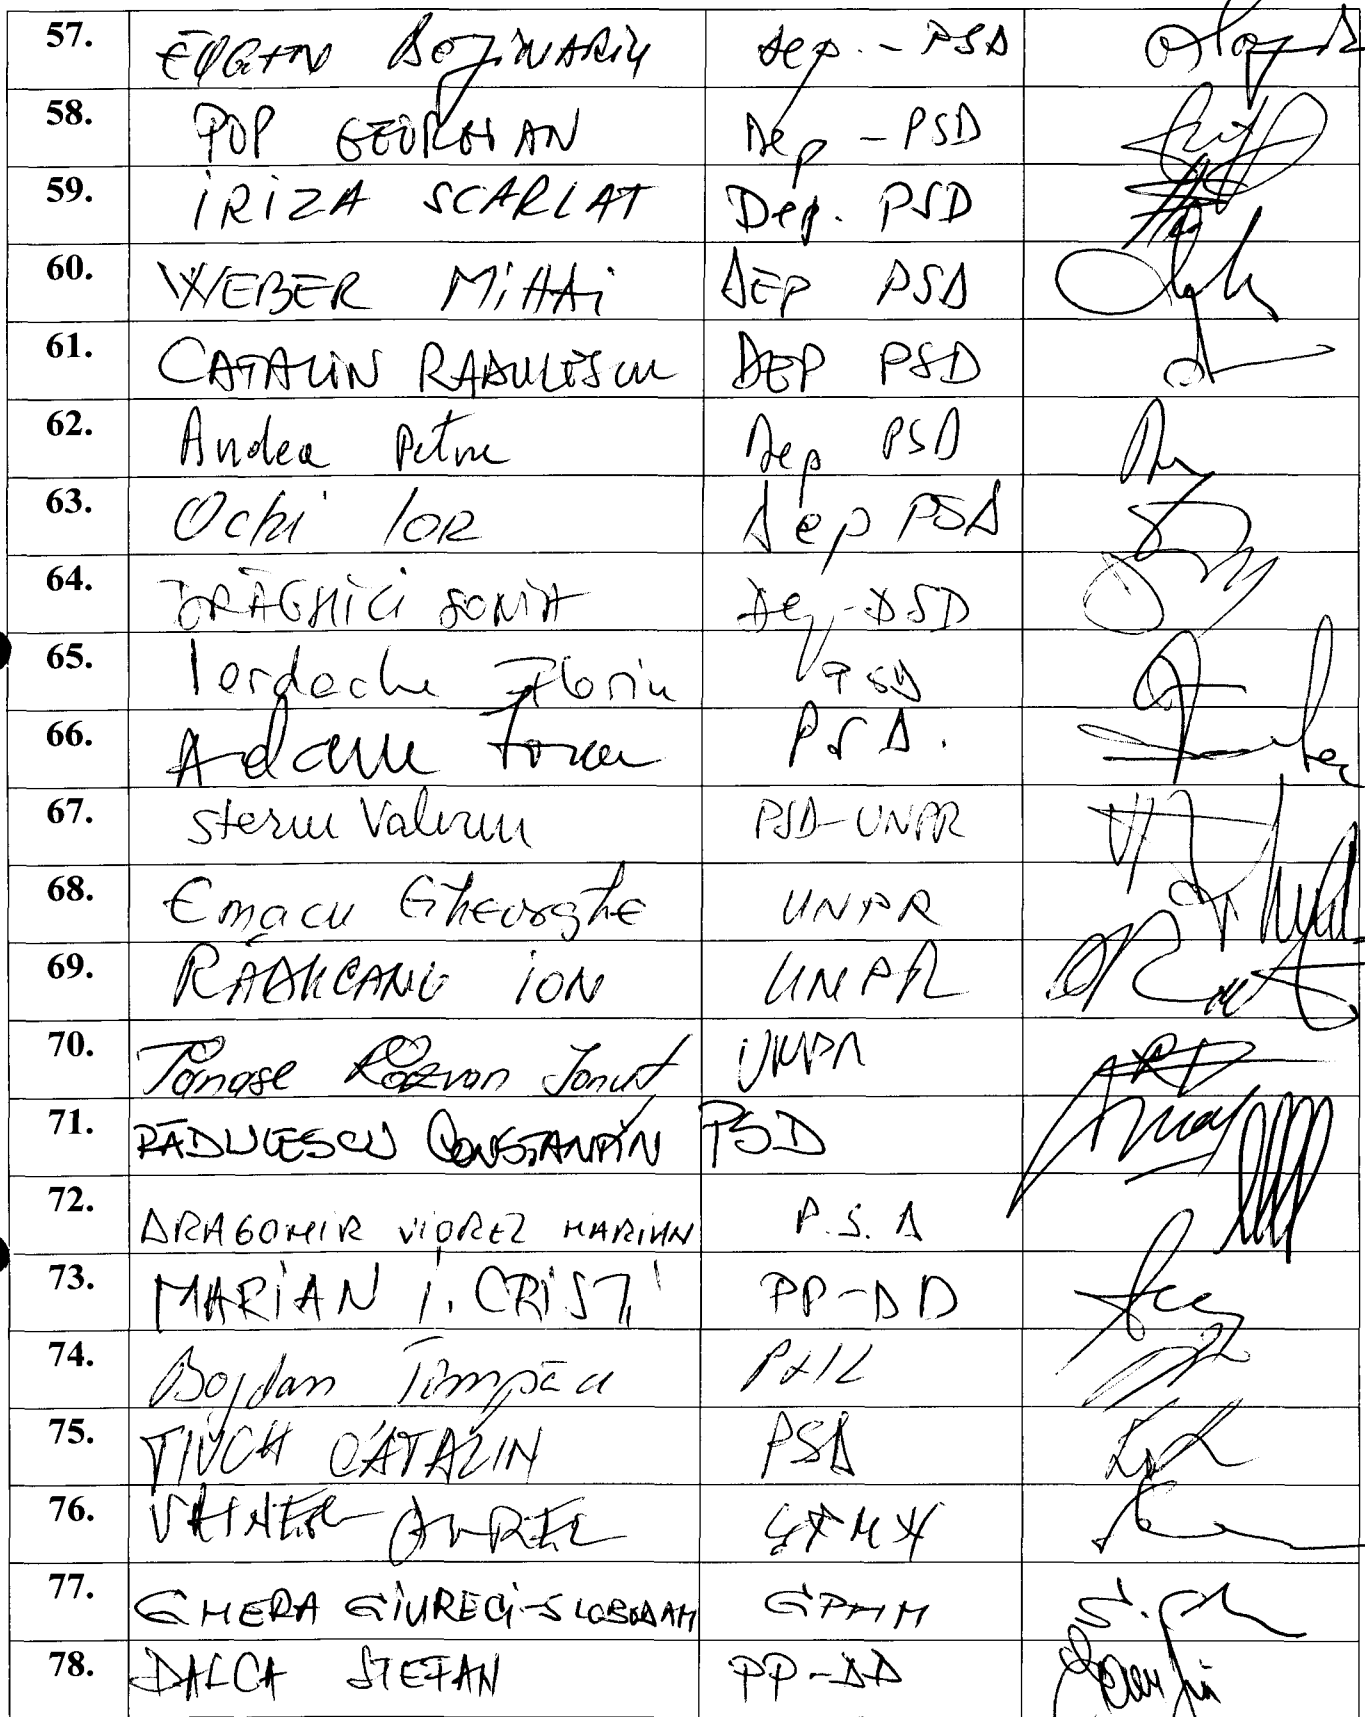 57. EUGEN BEJINARIU Dep. - PSD
58. POP GEORGIAN Dep - PSD
59. IRIZA SCARLAT Dep. PSD
60. WEBER MiHAi DEP PSD
61. CATALIN RADULESCU DEP PSD
62. Andea Petru Dep PSD
63. Ochi Ion Dep PSD
64. DRĂGHICI SONIA Dep - PSD
65. Iordache Florin PSD
66. Adam Ioan PSD.
67. Steriu Valeriu PSD-UNPR
68. Emacu Gheorghe UNPR
69. RĂDUCANU ION UNPR
70. Tănase Răzvan Ionuț UNPR
71. RĂDULESCU CONSTANTIN PSD
72. DRAGOMIR VIOREL MARIAN P.S.D
73. MARIAN I. CRISTI PP-DD
74. Bogdan Țîmpău PNL
75. TIUCH CĂTĂLIN PSD
76. VAINER AUREL
77. GHERA GIURECI-SLOBODAN GPMN
78. DALCA STEFAN PP-DD